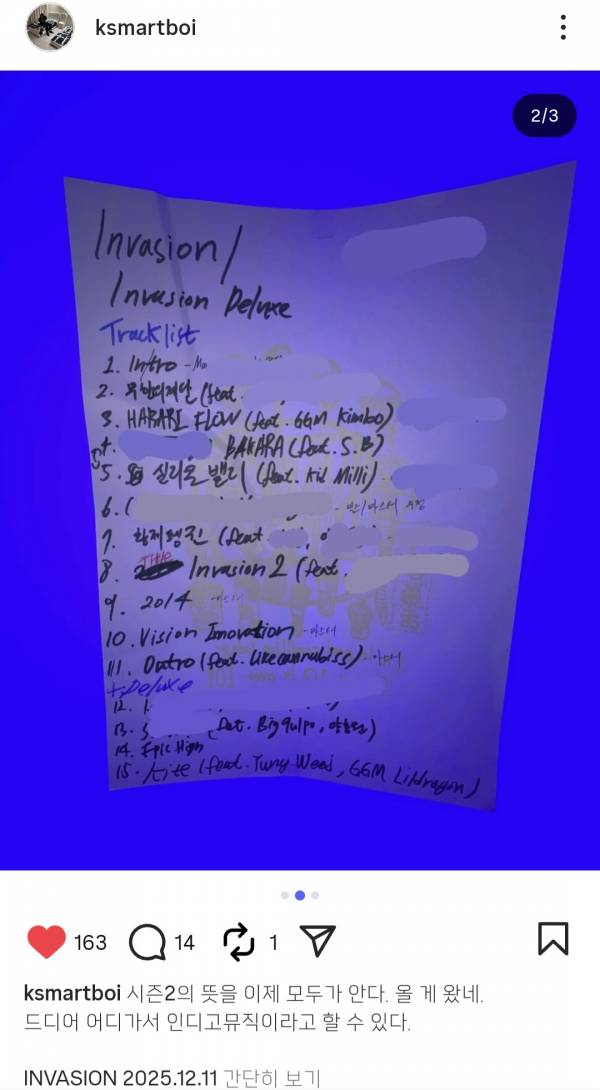 ksmartboi
2/3
Invasion /
Invasion Deluxe
Tracklist
1. Intro
2. (feat.
3. HARARI FLOW (feat. GGM Kimbo)
4. BAKARA (feat. S.B)
5. 실리콘 밸리 (feat. Kid Milli)
6. (
7. 황제펭귄 (feat
Title
8. Invasion 2 (feat.
9. 2014
10. Vision Inovation - 마스터
11. Outro (feat. Likecannabiss)
+ Deluxe
12.
13. S (feat. Big Gulpo,
14. Epic High
15. Kite (feat. Yung Weej, GGM Lildragon)
163 14 1
ksmartboi 시즌2의 뜻을 이제 모두가 안다. 올 게 왔네.
드디어 어디가서 인디고뮤직이라고 할 수 있다.
INVASION 2025.12.11 간단히 보기